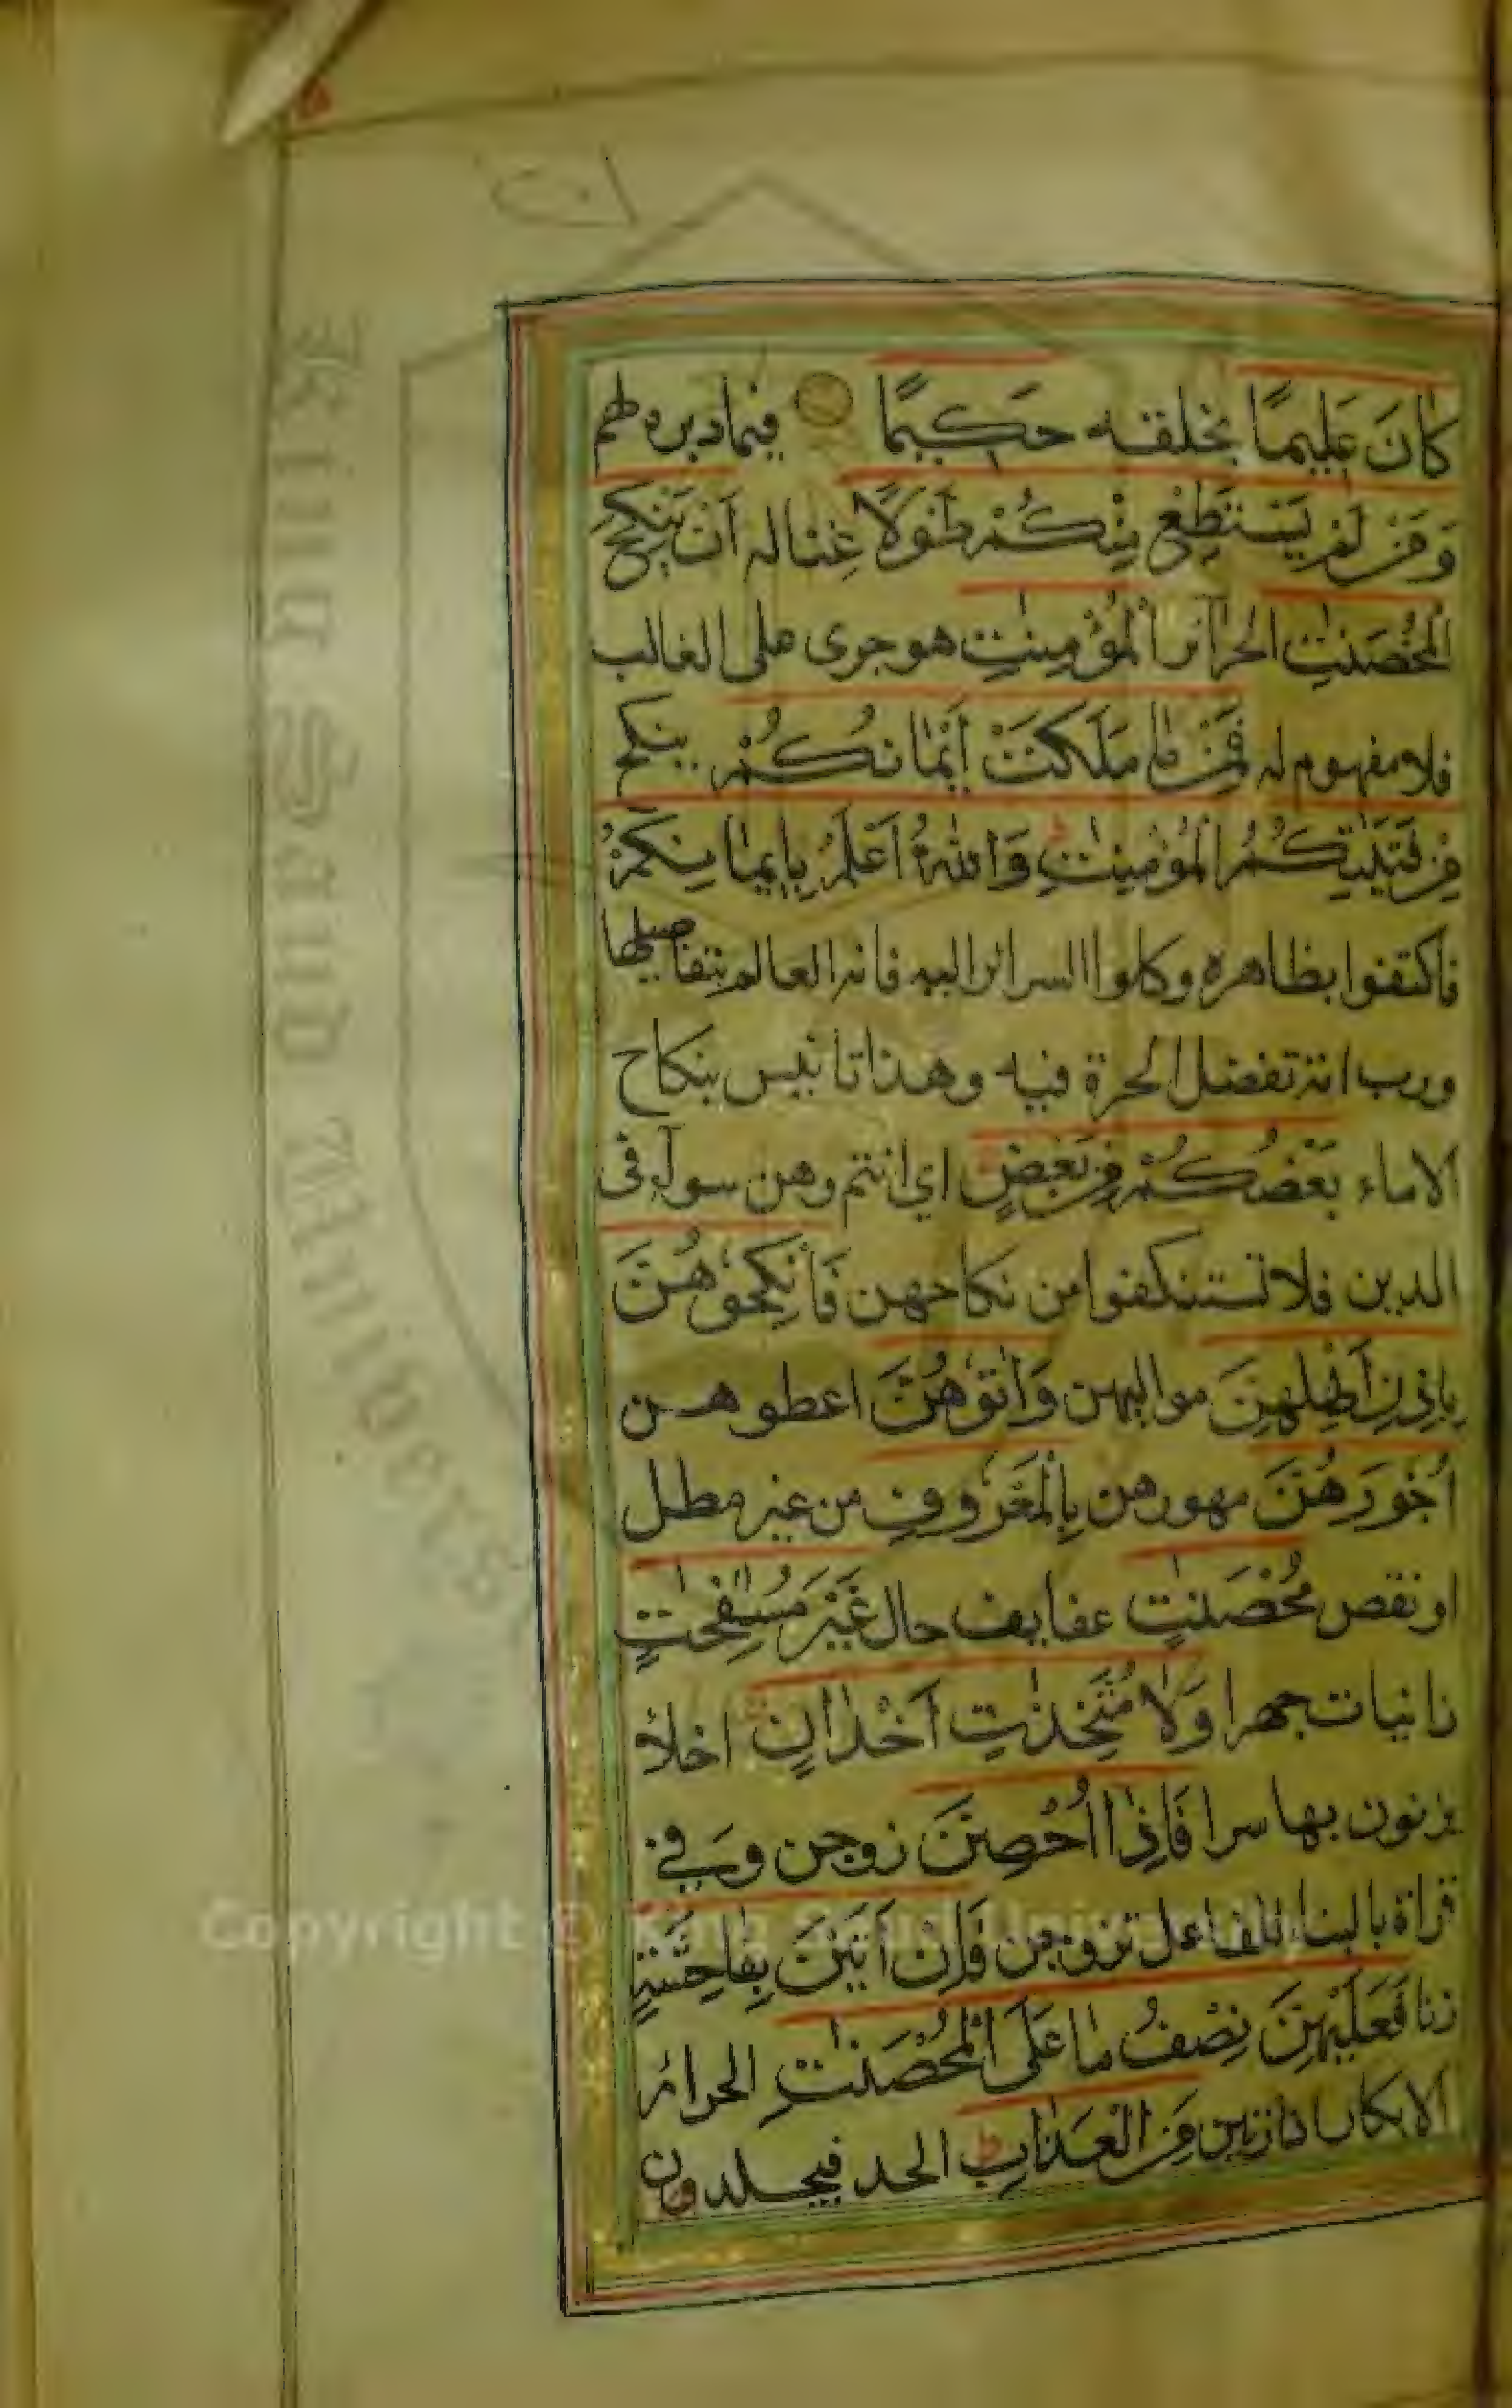 كَانَ عَلِيمًا بخلقه حَكِيمًا فيما دبره لهم
وَمَنْ لَمْ يَسْتَطِعْ مِنْكُمْ طَوْلًا غنا له أَنْ يَنْكِحَ
الْمُحْصَنٰتِ الحرائر الْمُؤْمِنٰتِ هو جرى على الغالب
فلا مفهوم له فَمِنْ مَا مَلَكَتْ أَيْمَانُكُمْ ينكح
مِنْ فَتَيٰتِكُمُ الْمُؤْمِنٰتِ ط وَاللهُ أَعْلَمُ بِإِيمَانِكُمْ
فاكتفوا بظاهره وكلوا السرائر اليه فانه العالم بتفاصيلها
ورب امة تفضل الحرة فيه وهذا تانيس بنكاح
الاماء بَعْضُكُمْ مِنْ بَعْضٍ اي انتم وهن سواء فى
الدين فلا تستنكفوا من نكاحهن فَانْكِحُوهُنَّ
بِإِذْنِ أَهْلِهِنَّ مواليهن وَاٰتُوهُنَّ اعطوهن
أُجُورَهُنَّ مهورهن بِالْمَعْرُوفِ من غير مطل
او نقص مُحْصَنٰتٍ عفايف حال غَيْرَ مُسٰفِحٰتٍ
زانيات جهرا وَلَا مُتَّخِذٰتِ أَخْدَانٍ اخلاء
يزنون بها سرا فَإِذَا أُحْصِنَّ زوجن وفي
قراة بالبناء للفاعل تزوجن فَإِنْ أَتَيْنَ بِفَاحِشَةٍ
زنا فَعَلَيْهِنَّ نِصْفُ مَا عَلَى الْمُحْصَنٰتِ الحرائر
الابكار اذا زنين مِنَ الْعَذَابِ ط الحد فيجلدون
Copyright © King Saud University
King Saud University